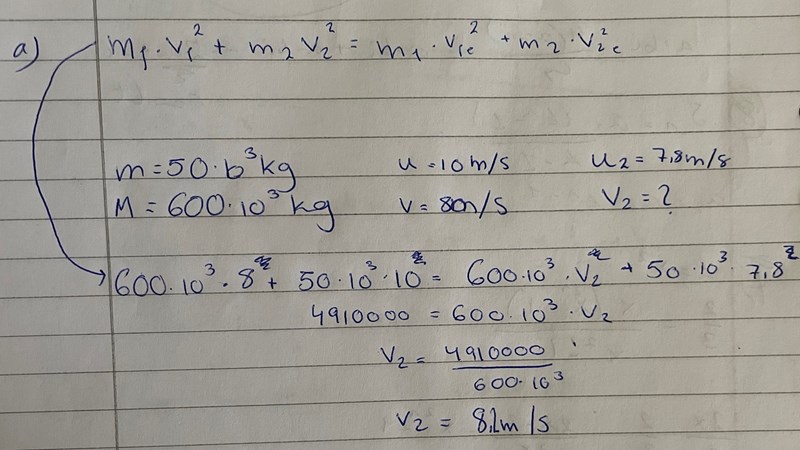 a) m₁·v₁² + m₂ v₂² = m₁·v₁e² + m₂·v₂e²
m = 50·10³ kg u = 10 m/s u₂ = 7,8 m/s
M = 600·10³ kg v = 8 m/s v₂ = ?
600·10³·8 + 50·10³·10 = 600·10³·v₂ + 50·10³·7,8
4910000 = 600·10³·v₂
v₂ = 4910000
600·10³
v₂ = 8,2 m/s